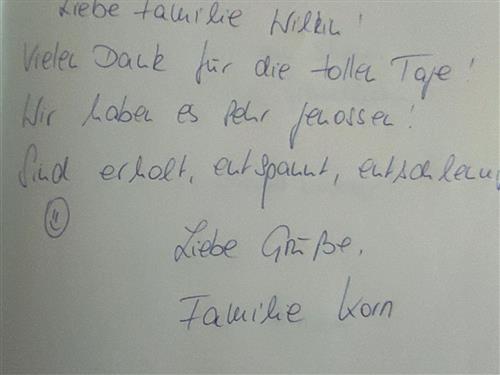 Liebe Familie Wilkin!
Vielen Dank für die tollen Tage!
Wir haben es sehr genossen!
Sind erholt, entspannt, entschleun
Liebe Grüße,
Familie Korn